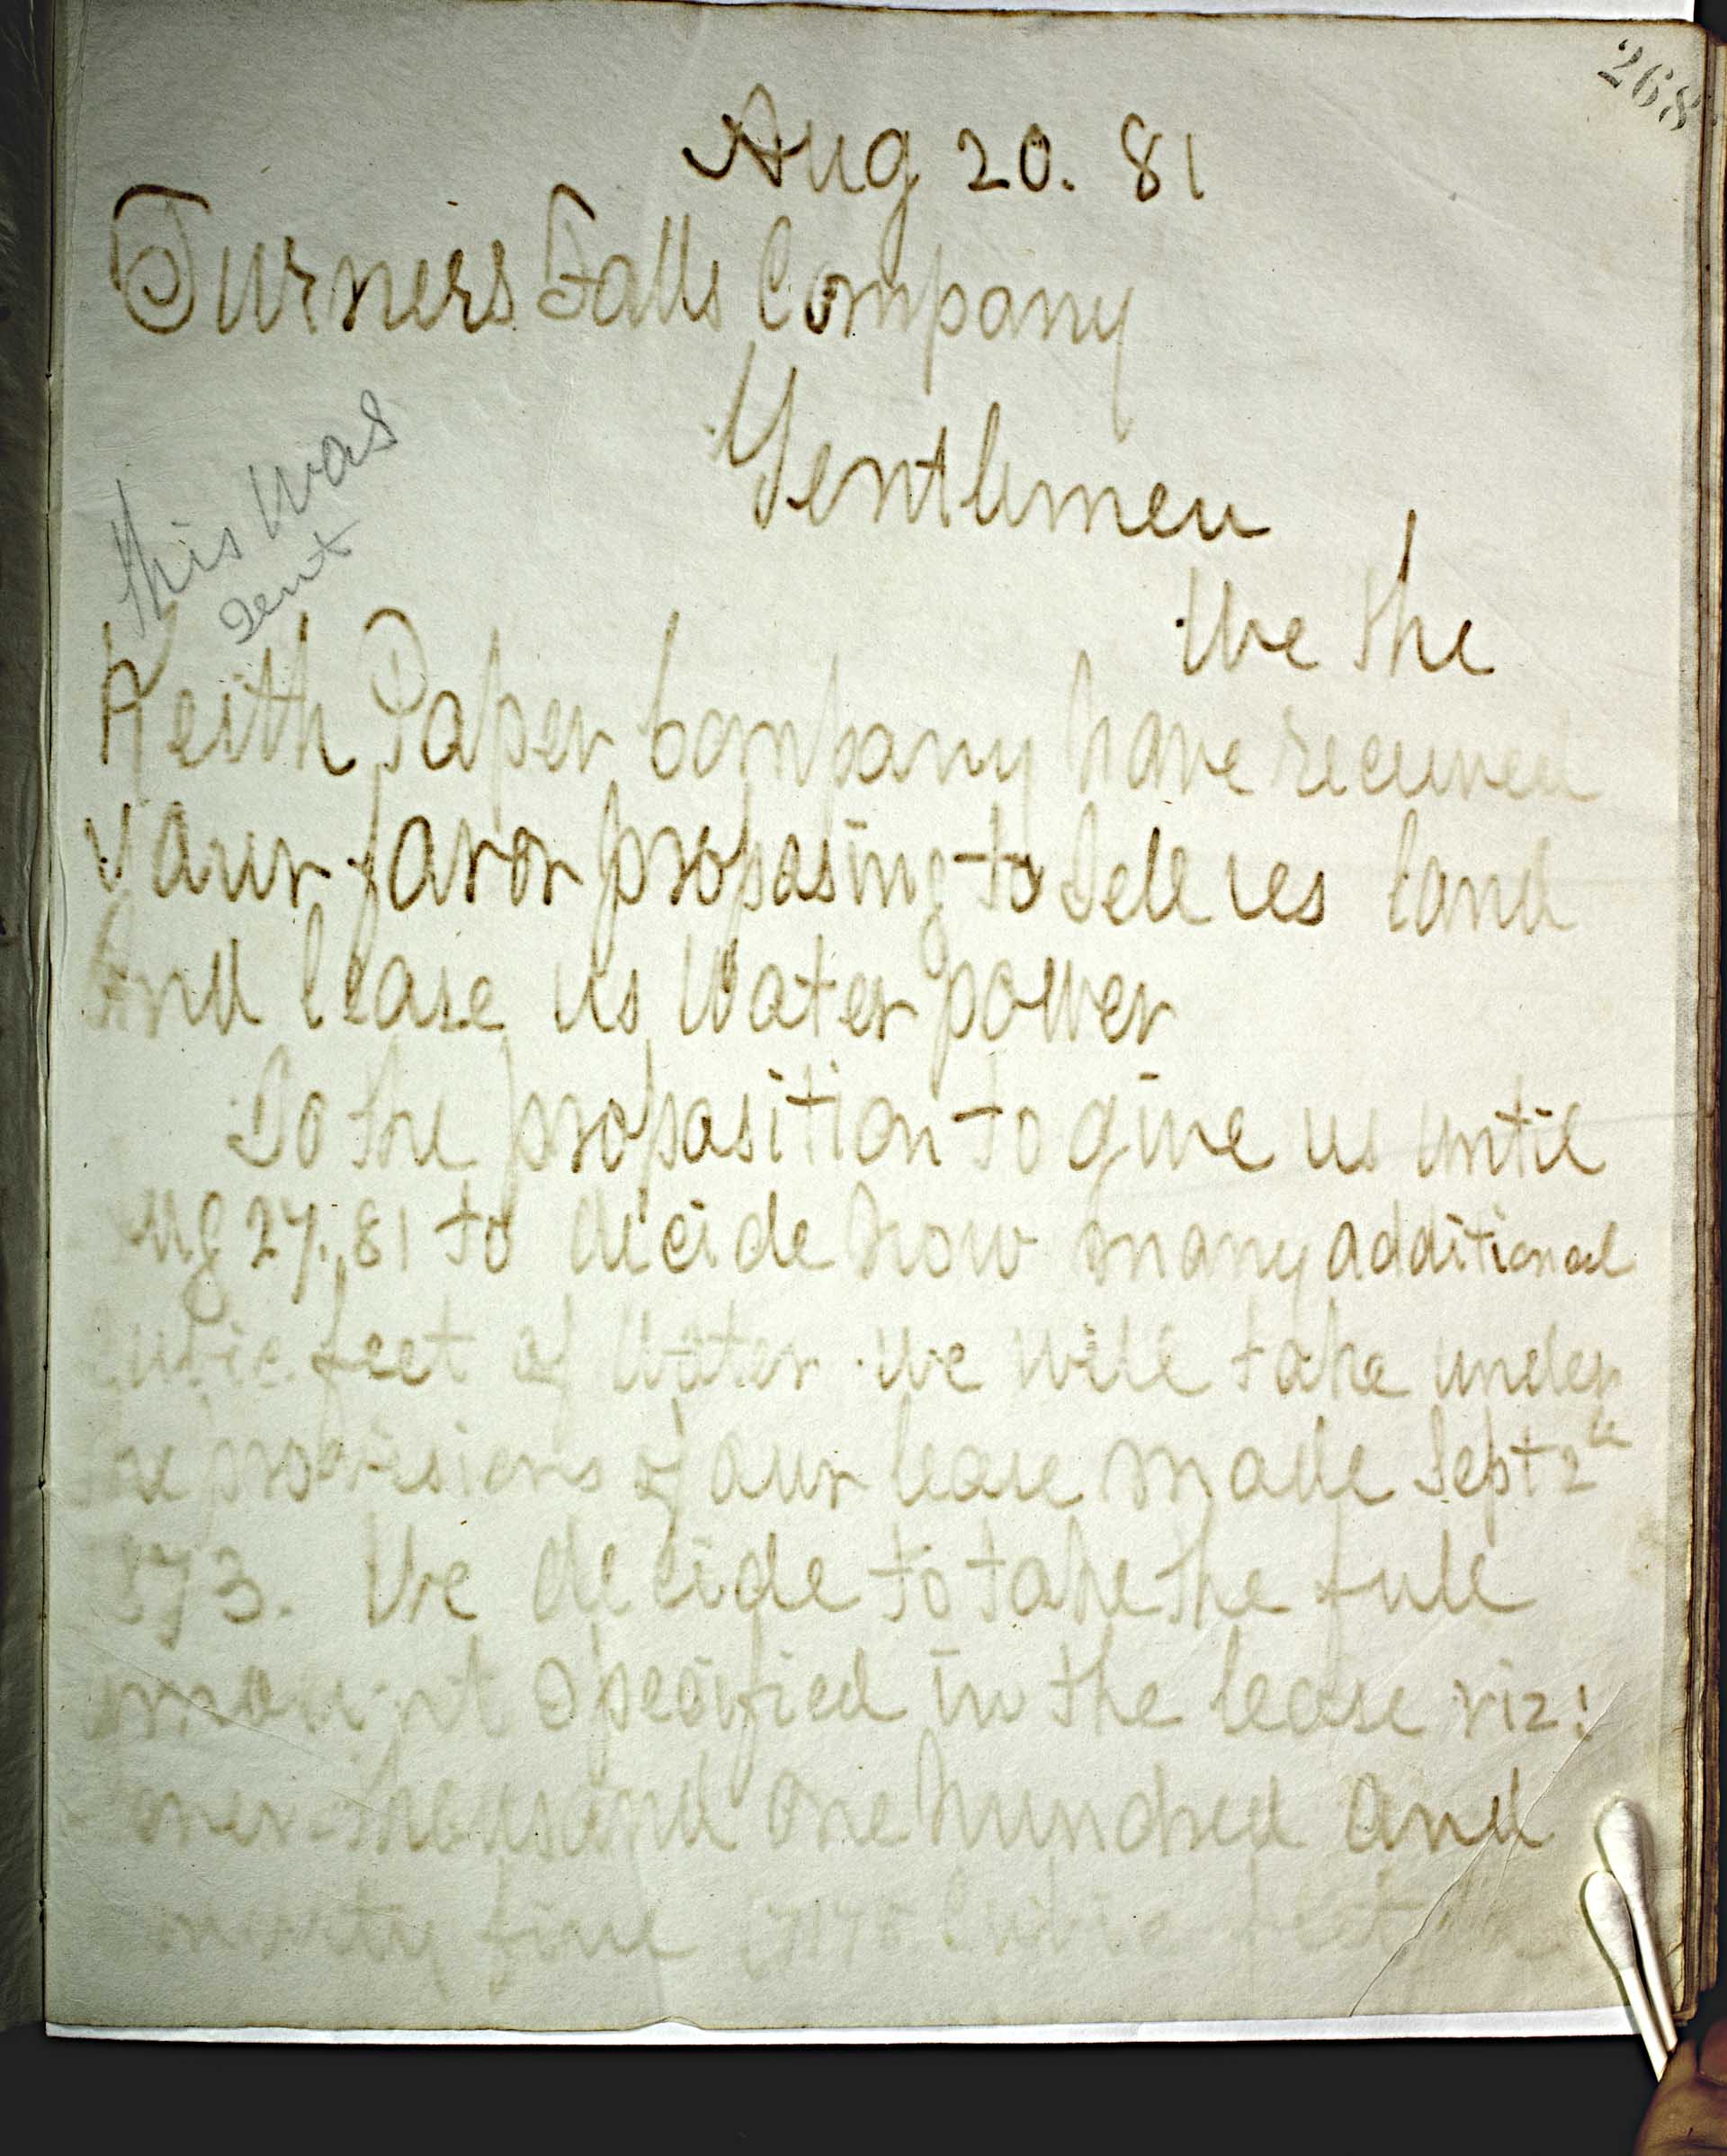 268
Aug 20. 81
Turners Falls Company
Gentlemen
this was
sent
We the
Keith Paper Company have received
your favor proposing to sell us land
and lease us water power
To the proposition to give us until
ug 27. 81 to decide how many additional
cubic feet of water we will take under
the provisions of our lease made Sept 2"
873. We decide to take the full
amount specified in the lease viz:
one thousand one hundred and
five cubic feet